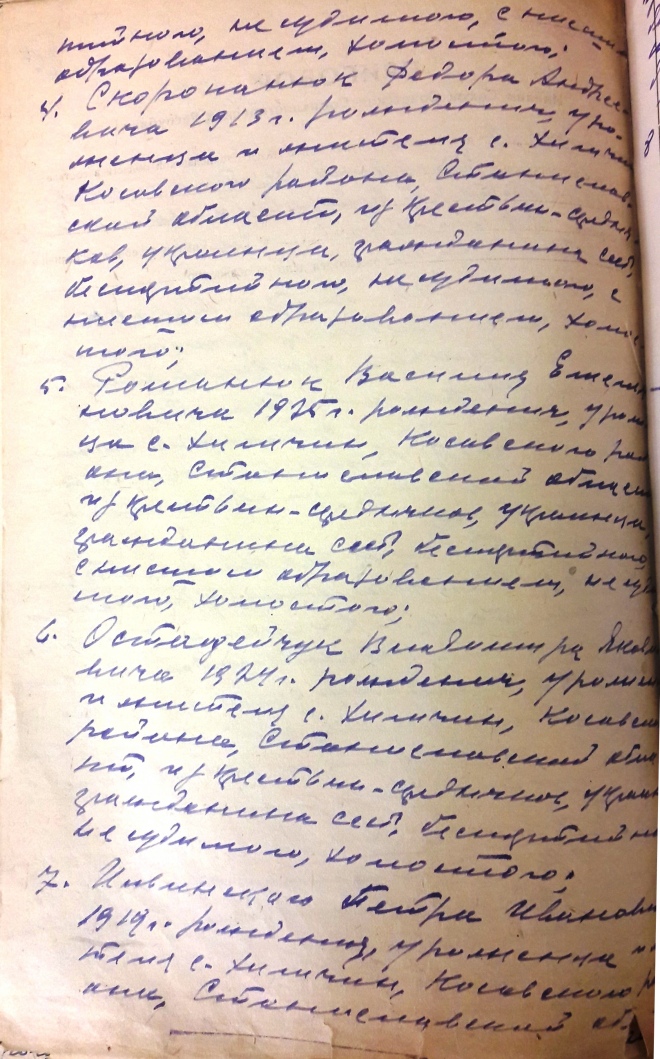 тийного, не судимого, с низши
образованием, холостого;
4. Скоропанюк Федора Андрее-
вича 1913 г. рождения, уро-
женца и жителя с. Химчин
Косовского района, Станислав-
ской области, из крестьян-средня-
ков, украинца, гражданина ссср,
беспартийного, не судимого, с
низшим образованием, холос
того;
5. Романюк Василия Емель
яновича 1925 г. рождения, урож
ца с. Химчин, Косовского рай
она, Станиславской облас
из крестьян-средняков, украинца,
гражданина ссср, беспартийного,
с низшим образованием, не суди
мого, холостого;
6. Остафейчук Владимира Яковл
вича 1924 г. рождения, урожен
и жителя с. Химчин, Косовско
района, Станиславской обла
сти, из крестьян-средняков, украин
гражданина ссср, беспартийно
не судимого, холостого;
7. Петра Иванови
1919 г. рождения, уроженца и
теля с. Химчин, Косовского р
она, Станиславской обл